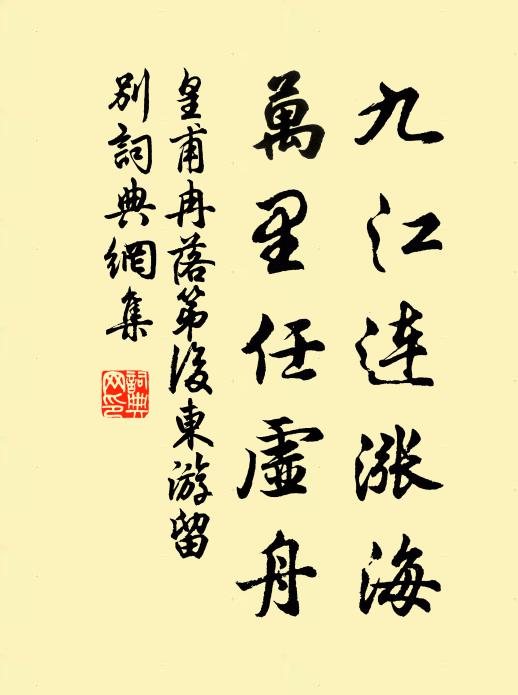 九江连漲海
萬里任虛舟
皇甫冉落第後東游留
别詞典網集
詞典
网印